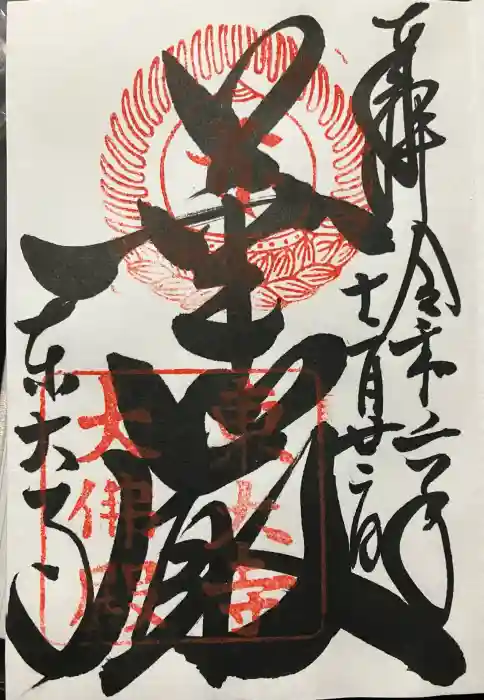 奉拝 令和二年
十一月廿二日
華厳
東大寺
東大寺
大佛殿